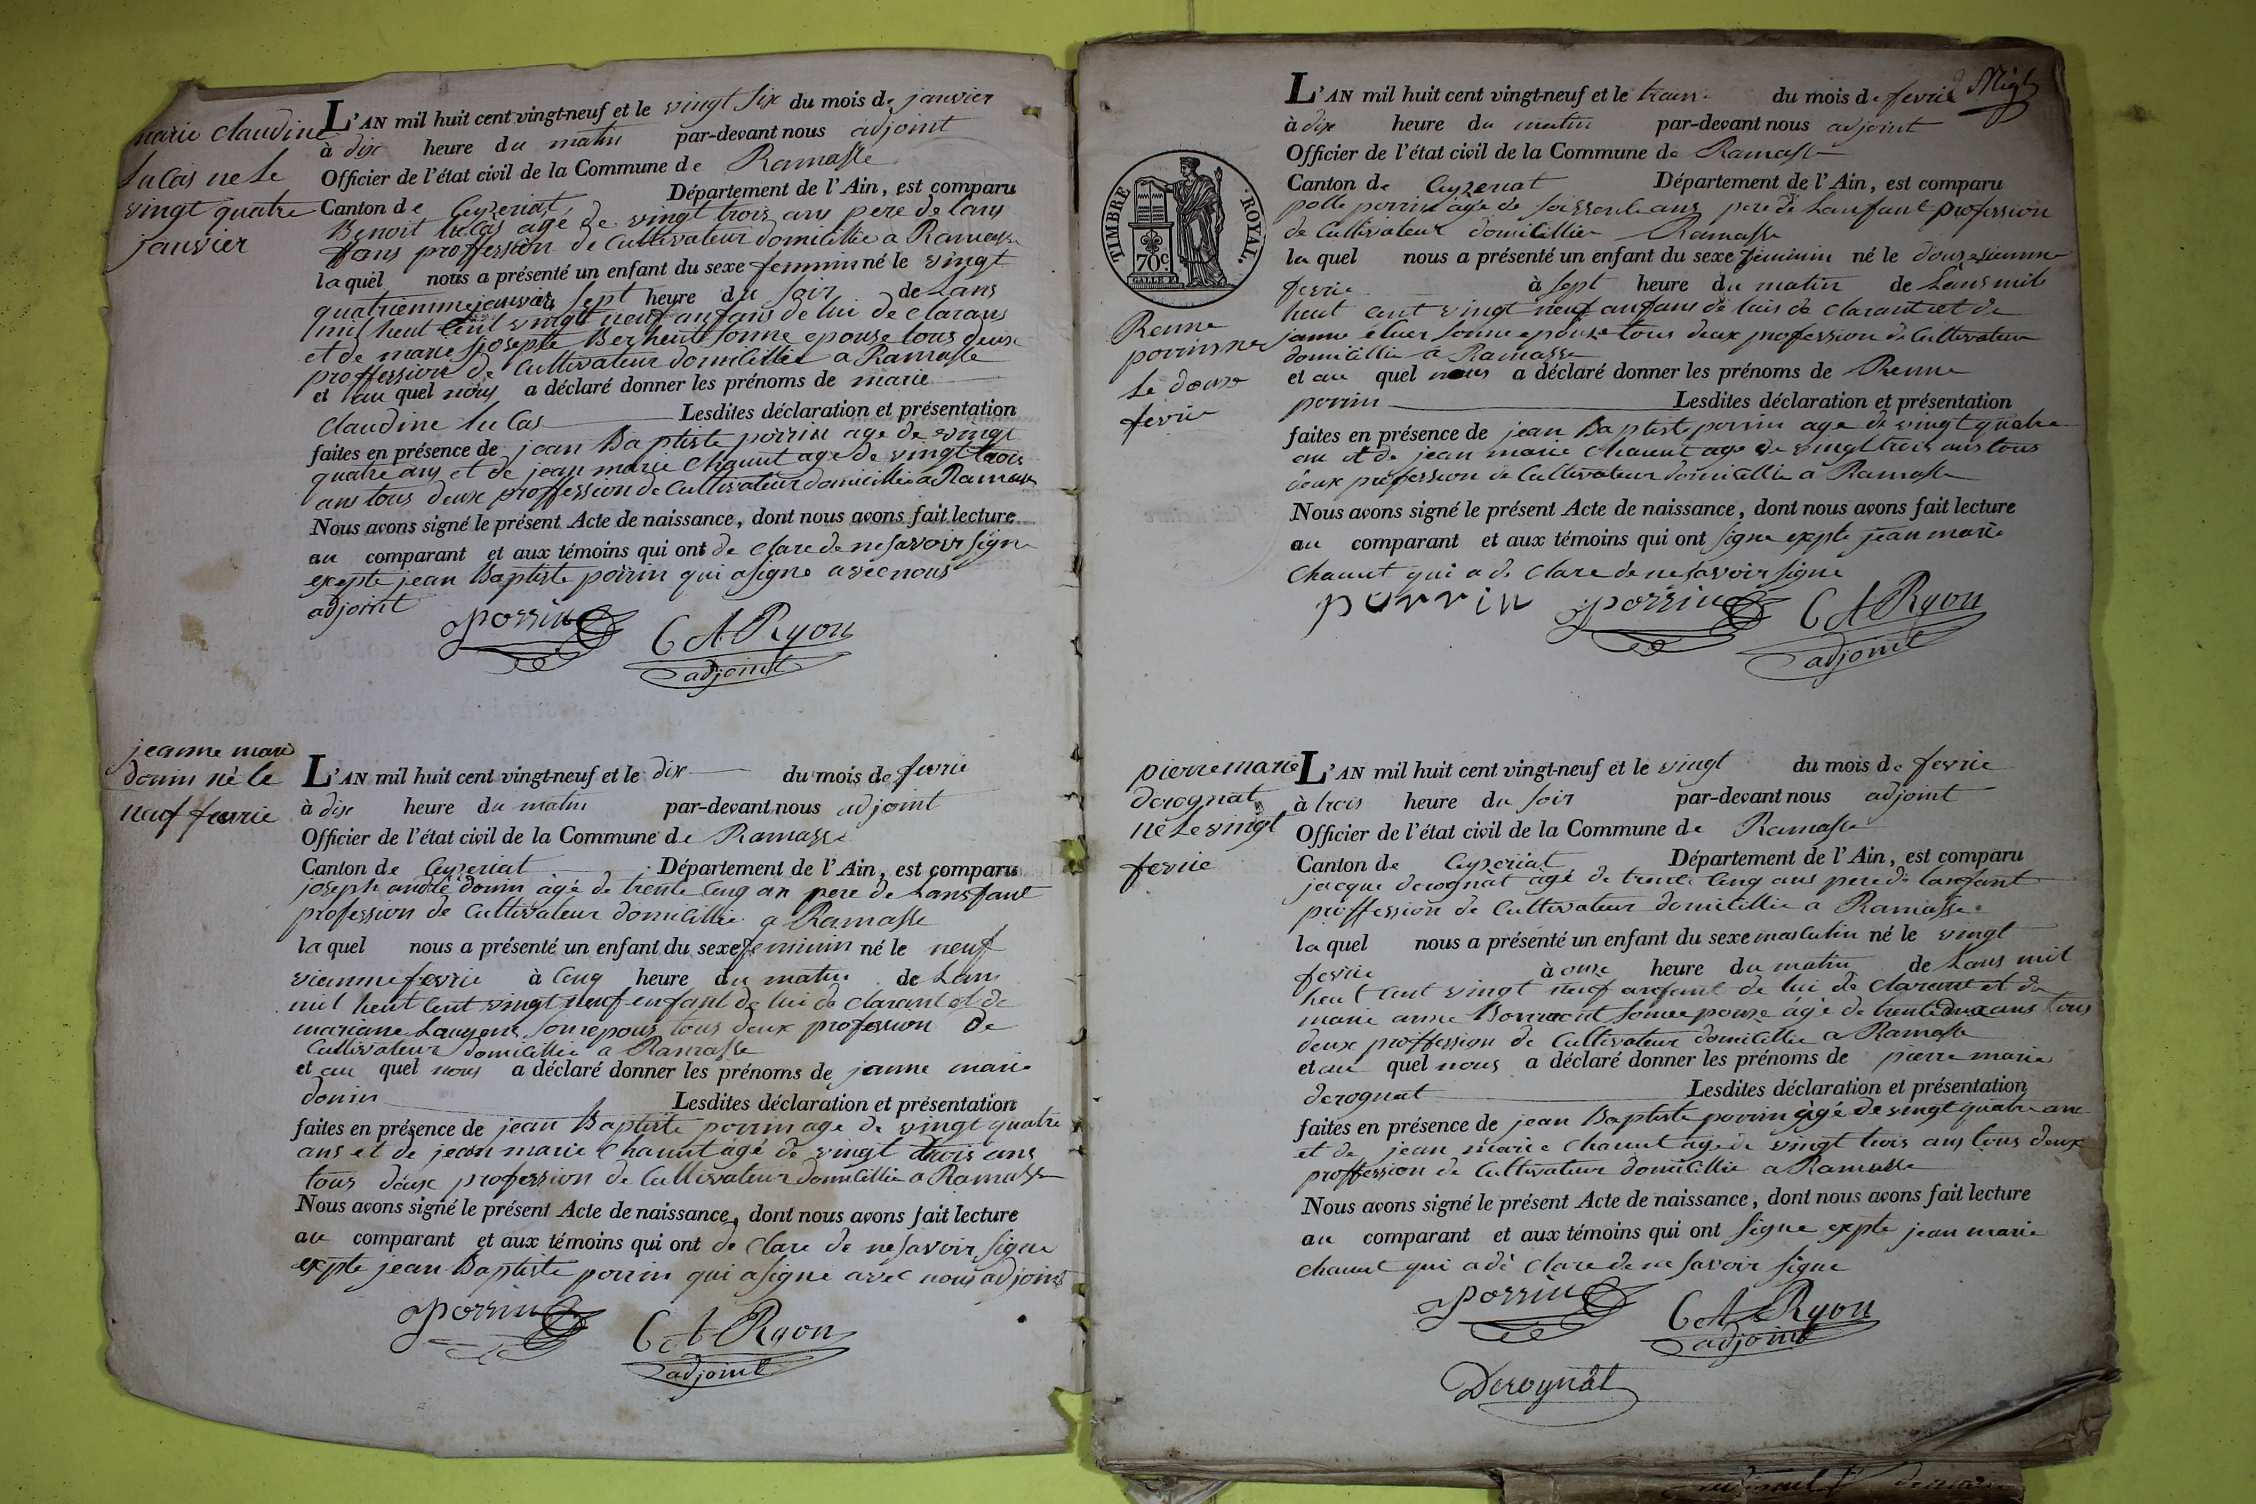 marie claudine
lucas ne le
vingt quatre
janvier
L'AN mil huit cent vingt-neuf et le vingt six du mois de janvier
à dix heure du matin par-devant nous adjoint
Officier de l'état civil de la Commune de Ramasse
Canton de Ceyzeriat Département de l'Ain, est comparu
Benoit lucas agé de vingt trois ans pere de lans
fans proffession de Cultivateur domicillie a Ramasse
laquel nous a présenté un enfant du sexe feminin né le vingt
quatriemme janvier à sept heure du soir de lans
mil heut cent vingt neuf anfans de lui de clarans
et de marie josepte Berheut sonne epouse tous deux
proffession de Cultivateur domicillie a Ramasse
et au quel nous a déclaré donner les prénoms de marie
claudine lucas Lesdites déclaration et présentation
faites en présence de jean Baptiste porrin age de vingt
quatre ans et de jean marie chanut age de vingt trois
ans tous deux proffession de Cultivateur domicillie a Ramasse
Nous avons signé le présent Acte de naissance, dont nous avons fait lecture
au comparant et aux témoins qui ont de clare de ne savoir signe
exepte jean Baptiste porrin qui a signe avec nous
adjoint
porrin C A Ryon
adjoint
jeanne mari
donin né le
neuf fevrie
L'AN mil huit cent vingt-neuf et le dix du mois de fevrie
à dix heure du matin par-devant nous adjoint
Officier de l'état civil de la Commune de Ramasse
Canton de Ceyzeriat Département de l'Ain, est comparu
joseph andré donin àgé de trente cenq an pere de lansfant
profession de Cultivateur domicillie a Ramasse
laquel nous a présenté un enfant du sexe feminin né le neuf
viemme fevrie à cenq heure du matin de lans
mil heut cent vingt neuf enfant de lui de clarant et de
mariane sonne epous tous deux profession de
Cultivateur domicillie a Ramasse
et au quel nous a déclaré donner les prénoms de janne marie
donin Lesdites déclaration et présentation
faites en présence de jean Baptiste porrin age de vingt quatre
ans et de jean marie chanut àgé de vingt trois ans
tous deux profession de Cultivateur domicillie a Ramasse
Nous avons signé le présent Acte de naissance, dont nous avons fait lecture
au comparant et aux témoins qui ont de clare de ne savoir signe
exepte jean Baptiste porrin qui a signe avec nous adjoint
porrin C A Ryon
adjoint
L'AN mil huit cent vingt-neuf et le du mois de fevrie
à dix heure du matin par-devant nous adjoint
Officier de l'état civil de la Commune de Ramasse
Canton de Ceyzeriat Département de l'Ain, est comparu
TIMBRE ROYAL.
70c
polle porrin àgé de soissente ans pere de lanfant profession
de Cultivateur domicillie Ramasse
laquel nous a présenté un enfant du sexe feminin né le douzesiemme
fevrie à sept heure du matin de lans mil
heut cent vingt neuf anfans de luis de clarant et de
janne sonne epouse tous deux profession de Cultivateur
domicillie a Ramasse
Renne
porrin ne
le douze
fevrie
et au quel nous a déclaré donner les prénoms de Renne
porrin Lesdites déclaration et présentation
faites en présence de jean Baptiste porrin age de vingt quatre
an et de jean marie chanut age de vingt trois ans tous
deux profession de Cultivateur domicillie a Ramasse
Nous avons signé le présent Acte de naissance, dont nous avons fait lecture
au comparant et aux témoins qui ont signe exepte jean marie
chanut qui a de clare de ne savoir signe
porrin porrin C A Ryon
adjoint
pierre marie
derognat
né le vingt
fevrie
L'AN mil huit cent vingt-neuf et le vingt du mois de fevrie
à trois heure du soir par-devant nous adjoint
Officier de l'état civil de la Commune de Ramasse
Canton de Ceyzeriat Département de l'Ain, est comparu
jacque derognat àgé de trente cenq ans pere de lanfant
proffession de Cultivateur domicillie a Ramasse
laquel nous a présenté un enfant du sexe masculin né le vingt
fevrie à onze heure du matin de lans mil
heut cent vingt neuf anfant de lui de clarant et de
marie anne sonne epouse àgé de trente deux ans tous
deux proffession de Cultivateur domicillie a Ramasse
et au quel nous a déclaré donner les prénoms de pierre marie
derognat Lesdites déclaration et présentation
faites en présence de jean Baptiste porrin àgé de vingt quatre ans
et de jean marie chanut age de vingt trois ans tous deux
proffession de Cultivateur domicillie a Ramasse
Nous avons signé le présent Acte de naissance, dont nous avons fait lecture
au comparant et aux témoins qui ont signe exepte jean marie
chanut qui a dé clare de ne savoir signe
porrin C A Ryon
adjoint
Derognat